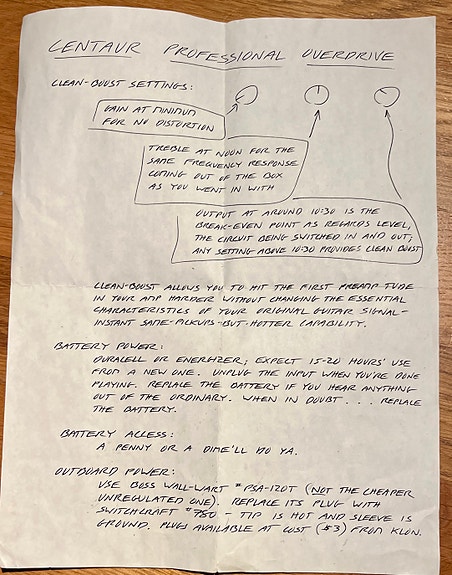 CENTAUR PROFESSIONAL OVERDRIVE
CLEAN-BOOST SETTINGS:
GAIN AT MINIMUM
FOR NO DISTORTION
TREBLE AT NOON FOR THE
SAME FREQUENCY RESPONSE
COMING OUT OF THE BOX
AS YOU WENT IN WITH
OUTPUT AT AROUND 10:30 IS THE
BREAK-EVEN POINT AS REGARDS LEVEL,
THE CIRCUIT BEING SWITCHED IN AND OUT;
ANY SETTING ABOVE 10:30 PROVIDES CLEAN BOOST
CLEAN-BOOST ALLOWS YOU TO HIT THE FIRST PREAMP TUBE
IN YOUR AMP HARDER WITHOUT CHANGING THE ESSENTIAL
CHARACTERISTICS OF YOUR ORIGINAL GUITAR SIGNAL-
INSTANT SAME-PICKUPS-BUT-HOTTER CAPABILITY.
BATTERY POWER:
DURACELL OR ENERGIZER; EXPECT 15-20 HOURS' USE
FROM A NEW ONE. UNPLUG THE INPUT WHEN YOU'RE DONE
PLAYING. REPLACE THE BATTERY IF YOU HEAR ANYTHING
OUT OF THE ORDINARY. WHEN IN DOUBT . . . REPLACE
THE BATTERY.
BATTERY ACCESS:
A PENNY OR A DIME'LL DO YA.
OUTBOARD POWER:
USE BOSS WALL-WART # PSA-120T (NOT THE CHEAPER
UNREGULATED ONE). REPLACE ITS PLUG WITH
SWITCHCRAFT #780 - TIP IS HOT AND SLEEVE IS
GROUND. PLUGS AVAILABLE AT COST ($3) FROM KLON.